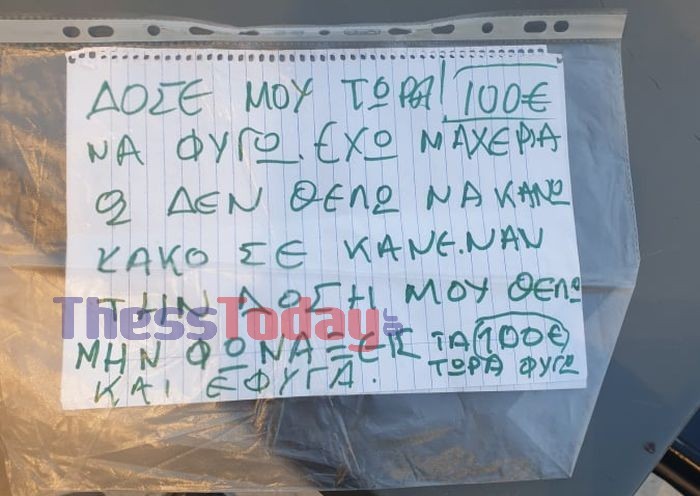 ΔΟΣΕ ΜΟΥ ΤΩΡΑ 100€
ΝΑ ΦΥΓΩ. ΕΧΩ ΜΑΧΕΡΙΑ
Ω ΔΕΝ ΘΕΛΩ ΝΑ ΚΑΝΩ
ΚΑΚΟ ΣΕ ΚΑΝΕ.ΝΑΝ
ΤΗΝ ΔΟΣΗ ΜΟΥ ΘΕΛΩ
ThessToday.gr
ΜΗΝ ΦΩΝΑΞΕΙΣ ΤΑ 100€
ΤΩΡΑ ΦΥΓΩ
ΚΑΙ ΕΦΥΓΑ.